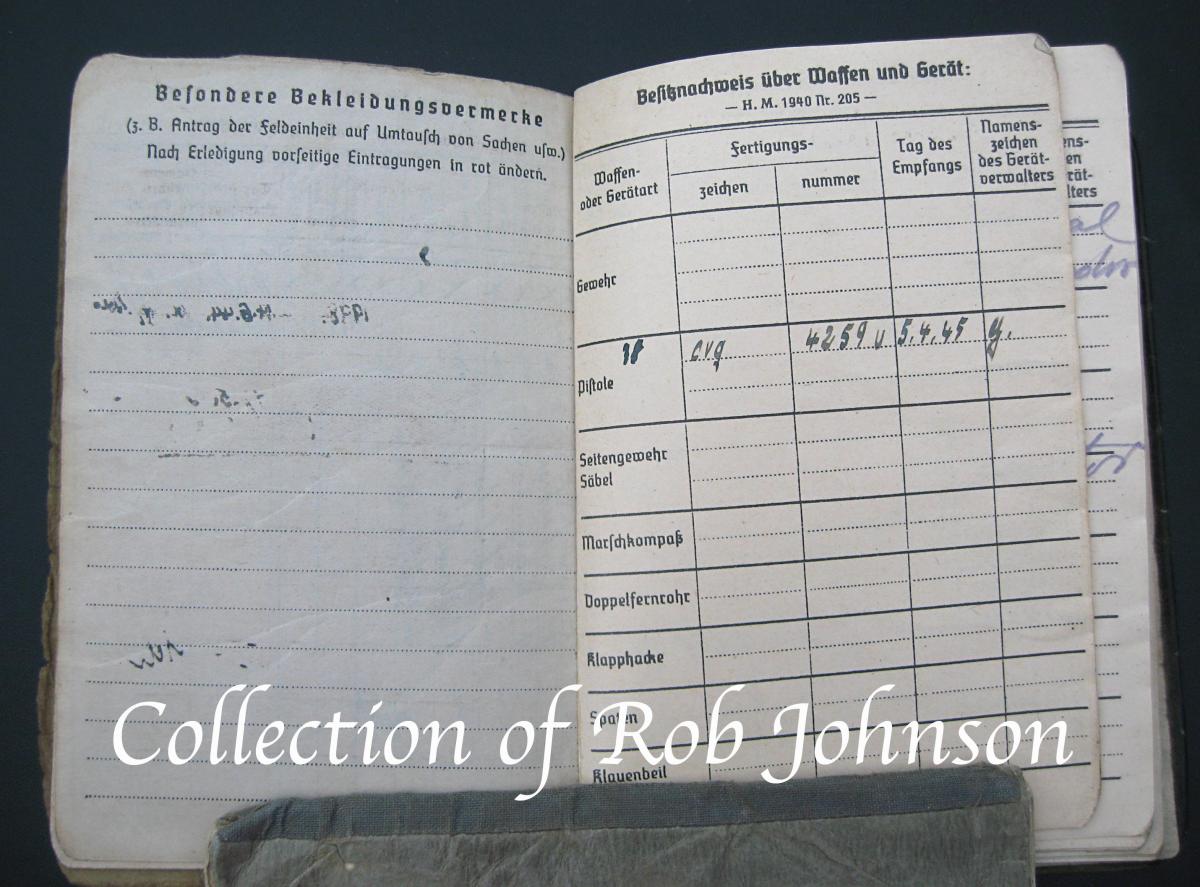 Besondere Bekleidungsvermerke
(z. B. Antrag der Feldeinheit auf Umtausch von Sachen usw.)
Nach Erledigung vorseitige Eintragungen in rot ändern.
Besitznachweis über Waffen und Gerät:
— H. M. 1940 Nr. 205 —
Waffen-
oder Gerätart
Fertigungs-
zeichen
nummer
Tag des
Empfangs
Namens-
zeichen
des Gerät-
verwalters
Gewehr
Pistole
cvq 4259 v 5.4.45 y.
Seitengewehr
Säbel
Marschkompaß
Doppelfernrohr
Klapphacke
Spaten
Klauenbeil
ens-
en
rät-
lters
Collection of Rob Johnson